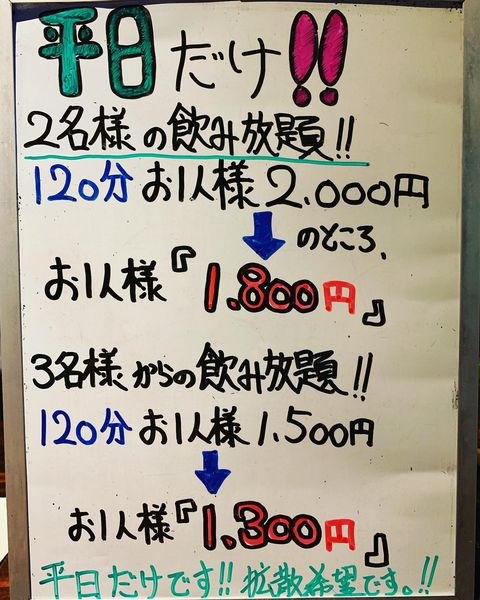 平日だけ!!
2名様の飲み放題!!
120分 お1人様 2.000円
のところ、
お1人様『1.800円』
3名様からの飲み放題!!
120分 お1人様 1.500円
お1人様『1.300円』
平日だけです!! 拡散希望です。!!